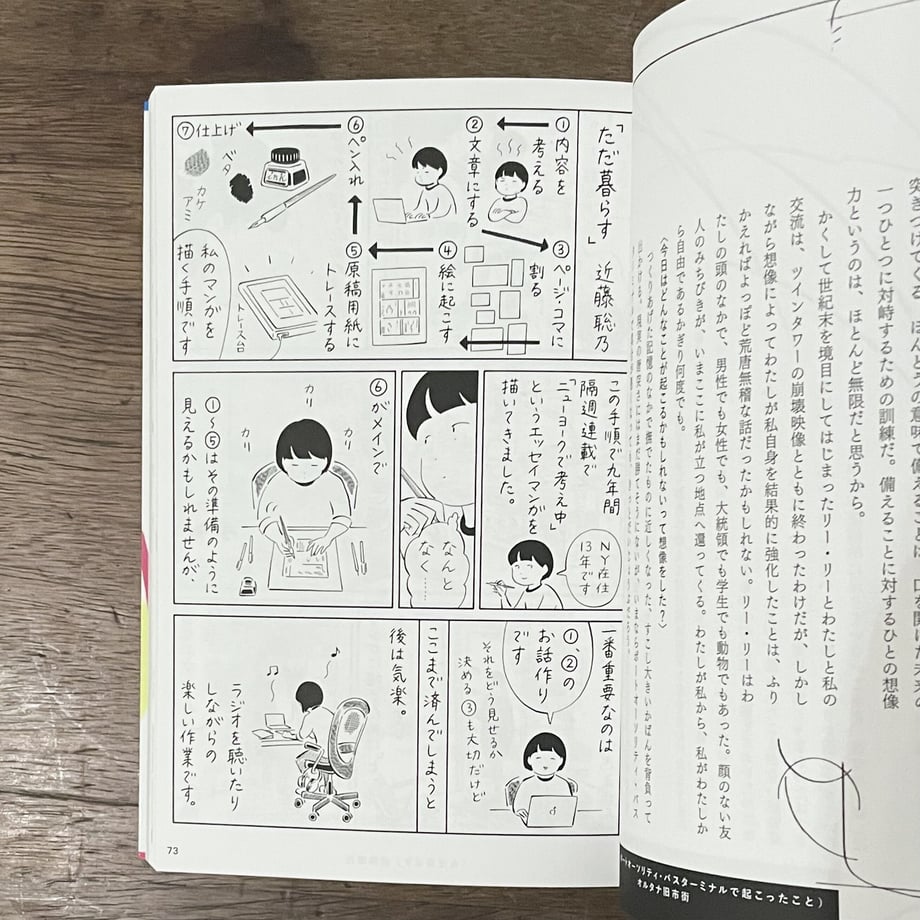 一つひとつに対峙するための訓練だ。備えることに対するひとの想像
力というのは、ほとんど無限だと思うから。
かくして世紀末を境目にしてはじまったリー・リーとわたしと私の
交流は、ツインタワーの崩壊映像とともに終わったわけだが、しかし
ながら想像によってわたしが私自身を結果的に強化したことは、ふり
かえればよっぽど荒唐無稽な話だったかもしれない。リー・リーはわ
たしの頭のなかで、男性でも女性でも、大統領でも学生でも動物でもあった。顔のない友
人のみちびきが、いまここに私が立つ地点へ還ってくる。わたしが私から、私がわたしか
ら自由であるかぎり何度でも。
〈今日はどんなことが起こるかもしれないって想像をした?〉
つくりあげた記憶のなかで撫でたものに近しくなった、すこし大きいかばんを背負って
出かける。現実の唐突さにはまだ勝てそうにないが、いまならポートオーソリティ・バス
ートオーソリティ・バスターミナルで起こったこと）
オルタナ旧市街
「ただ暮らす」 近藤聡乃
①内容を
考える
②文章にする
③ページ・コマに
割る
④絵に起こす
⑤原稿用紙に
トレースする
トレース台
⑥ペン入れ
⑦仕上げ
ベタ
カケ
アミ
私のマンガを
描く手順です
この手順で九年間
隔週連載で
「ニューヨークで考え中」
というエッセイマンガを
描いてきました。
NY在住
13年です
なんと
なく……
⑥がメインで
カリ
カリ
カリ
①〜⑤はその準備のように
見えるかもしれませんが
一番重要なのは
①、②の
お話作り
です
それをどう見せるか
決める③も大切だけど
ここまで済んでしまうと
後は気楽。
ラジオを聴いたり
しながらの
楽しい作業です。
73